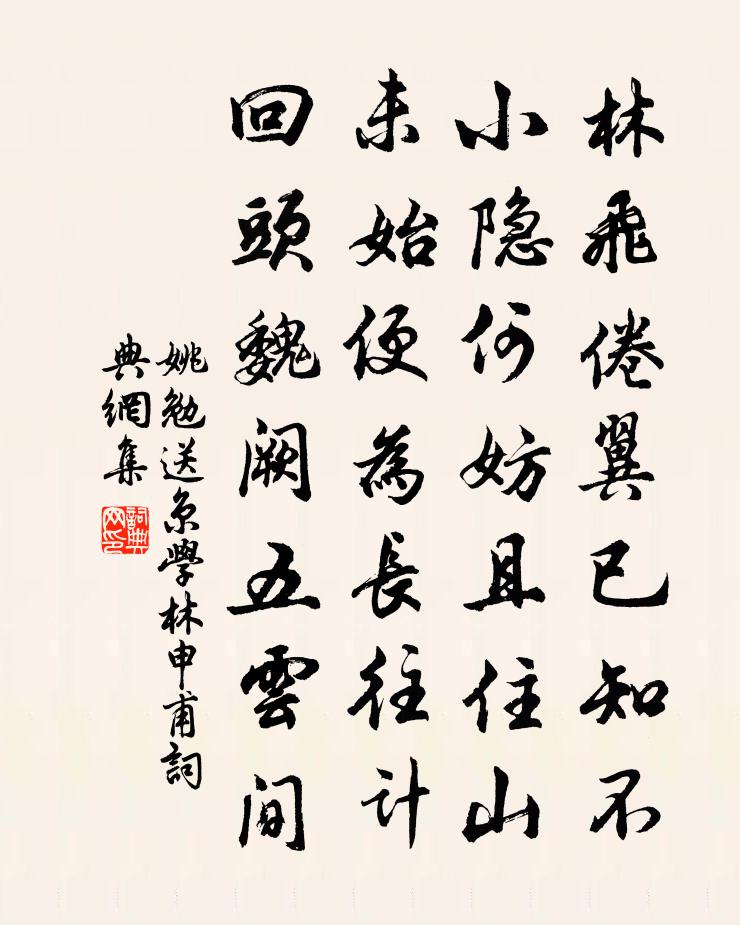 林飛倦翼已知不
小隐何妨且住山
未始便為長往計
回頭魏阙五雲间
姚勉送京學林申甫詞
典網集
詞典网印